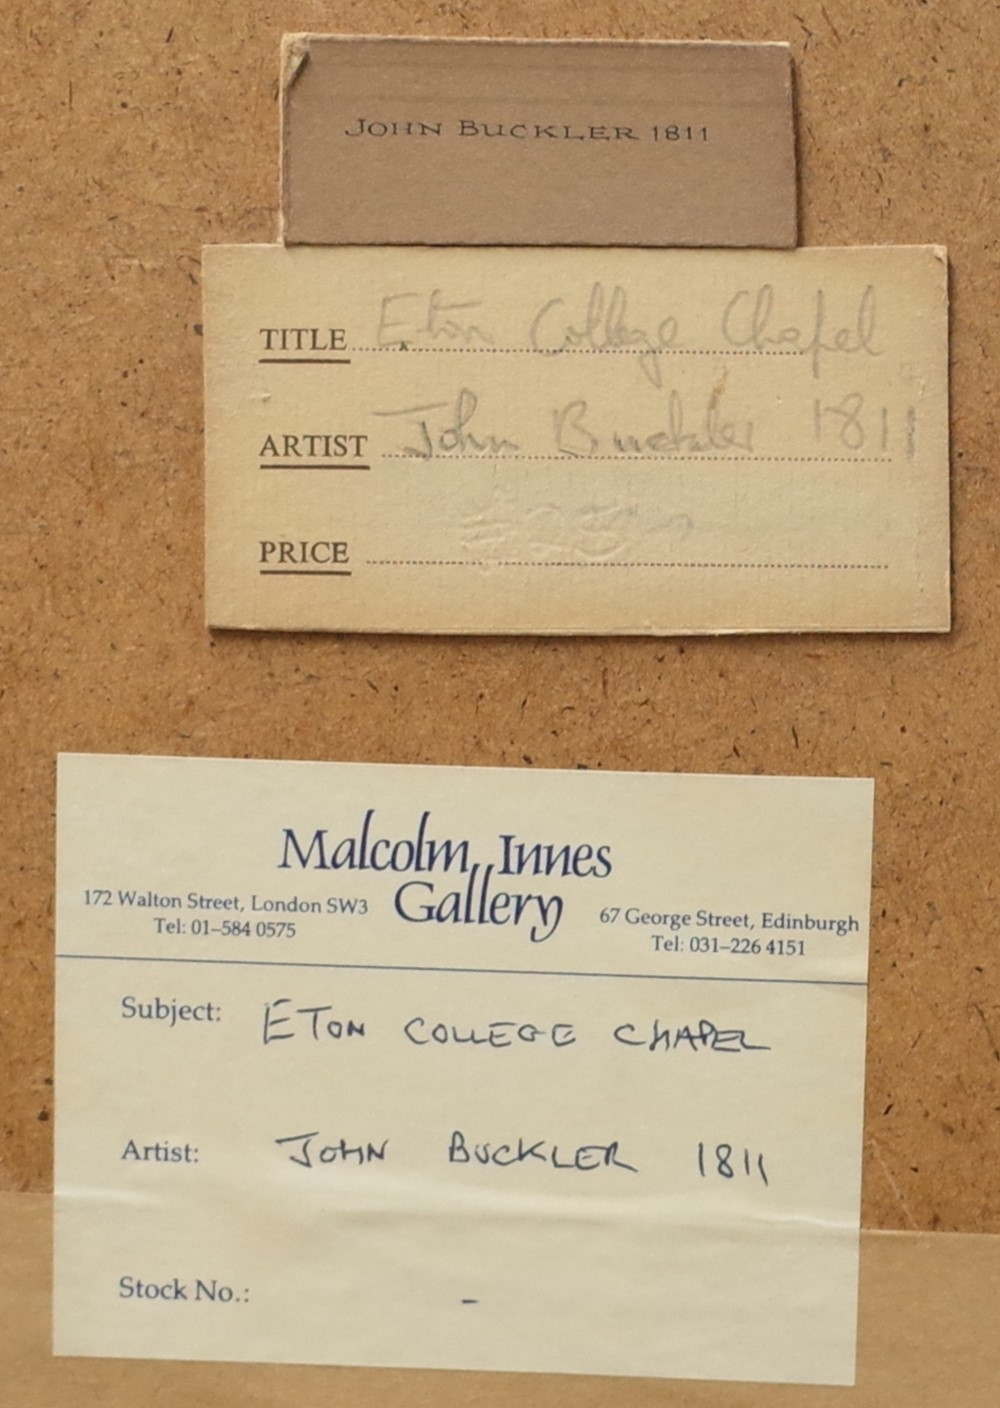 JOHN BUCKLER 1811
TITLE Eton College Chapel
ARTIST John Buckler 1811
PRICE
Malcolm Innes
Gallery
172 Walton Street, London SW3
Tel: 01-584 0575
67 George Street, Edinburgh
Tel: 031-226 4151
Subject: ETON COLLEGE CHAPEL
Artist: JOHN BUCKLER 1811
Stock No.: -